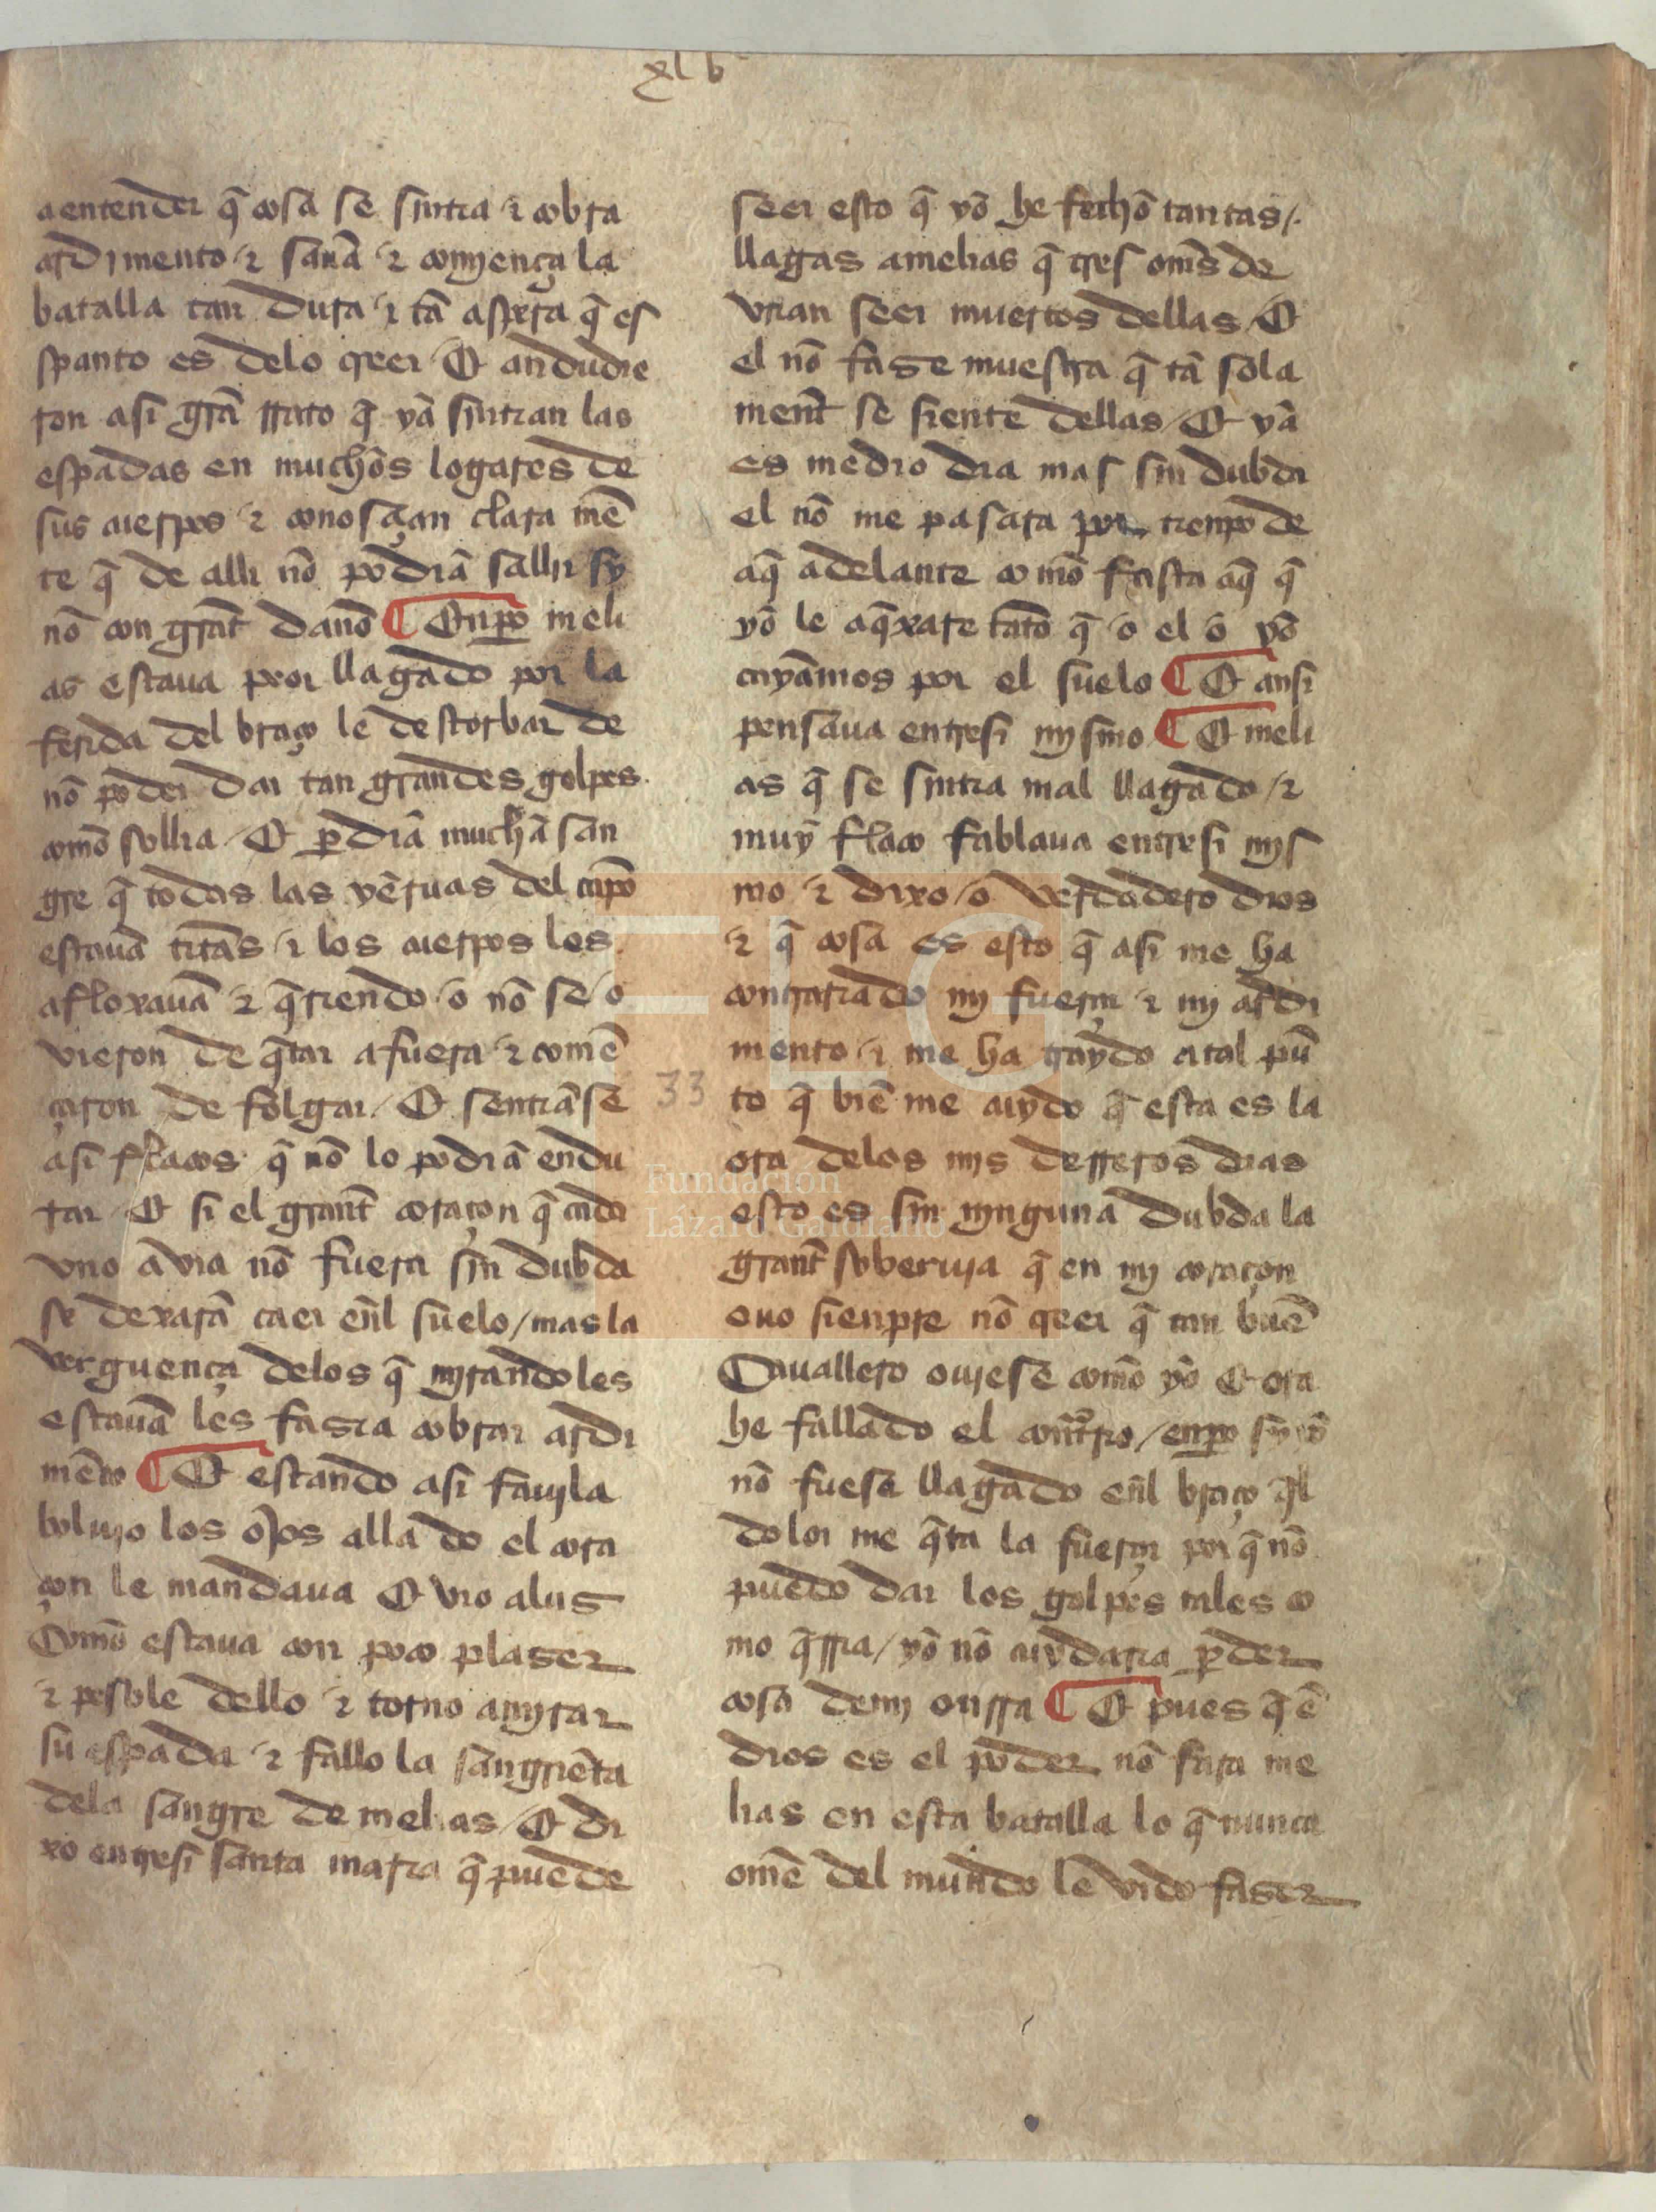 xl b
a entender q̃ cosa se sintia ⁊ cobra
ardimento / ⁊ sanã ⁊ comjença la
batalla tan dura ⁊ tã aspera q̃ es
spanto es delo creer / Et andudie
ron asi grã rrato q̃ yã sintian las
espadas en muchõs logares de
sus cuerpos ⁊ conosçian clara mẽ
te q̃ de alli nõ podriã sallir sy
nõ con grãt danõ ¶ Enpo meli
as estaua peor llagado por la
ferida del braço le destorbar de
nõ poder dar tan grandes golpes
comõ sollia / Et pdiã muchã san
gre q̃ todas las vẽruas del cupõ
estauã tirãs ⁊ los cuerpos les
afloxauã ⁊ q̃riendo / o nõ se / o
vieron de q̃tar a fuera ⁊ comẽ
çaron de folgar / Et sentiãse
asi flacos q̃ nõ lo podriã endu
rar / Et si el grãnt coraçon q̃ cada
vno avia nõ fuera sin dubda
se dexarã caer eñl suelo / mas la
verguença delos q̃ mjrandoles
estauã les fasia cobrar ardi
mẽto ¶ Et estando asi fauila
boluio los ojos alla do el cora
çon le mandaua Et vio a lus
Comõ estaua con poco plaser
⁊ pesole dello ⁊ torno a mjrar
su espada ⁊ fallo la sangriẽta
dela sangre de melias / Et di
xo entresi santa maria q̃ puede
seer esto q̃ yõ he fechõ tantas /
llagas a melias q̃ tres omẽs de
vrian seer muertos dellas / Et
el nõ fase muestra q̃ tã sola
ment se siente dellas / Et yã
es medio dia mas sin dubda
el nõ me pasara por tienpo de
aq̃ adelante comõ fasta aq̃ q̃
yõ le aq̃xare tãto q̃ o el o yõ
cayãmos por el suelo ¶ Et ansi
pensaua entresi mjsmo ¶ Et meli
as q̃ se sintia mal llagado / ⁊
muy flaco fablaua entresi mjs
mo ⁊ dixo / o verdadero dios
⁊ q̃ cosa es esto q̃ asi me ha
contrariado mj fuerça ⁊ mj ardi
mento ⁊ me ha traydo a tal pũ
to q̃ biẽ me cuydo q̃ esta es la
ora delos mjs derreros dias
esto es sin njnguna dubda la
grãnt soberuja q̃ en mj coraçon
ouo sienpre nõ creer q̃ tan buẽ
Cauallero oujese comõ yõ Et ora
he fallado el / enpo sy yõ
nõ fuese llagado eñl braço q̃l
dolor me q̃ta la fuerça por q̃ nõ
puedo dar los golpes tales co
mo q̃rria / yõ nõ cuydaria pder
cosa de mj onrra ¶ Et pues q̃ ẽ
dios es el poder nõ fara me
lias en esta batalla lo q̃ nunca
omẽ del mundo le vido faser
33
FLG
Fundación
Lázaro Galdiano